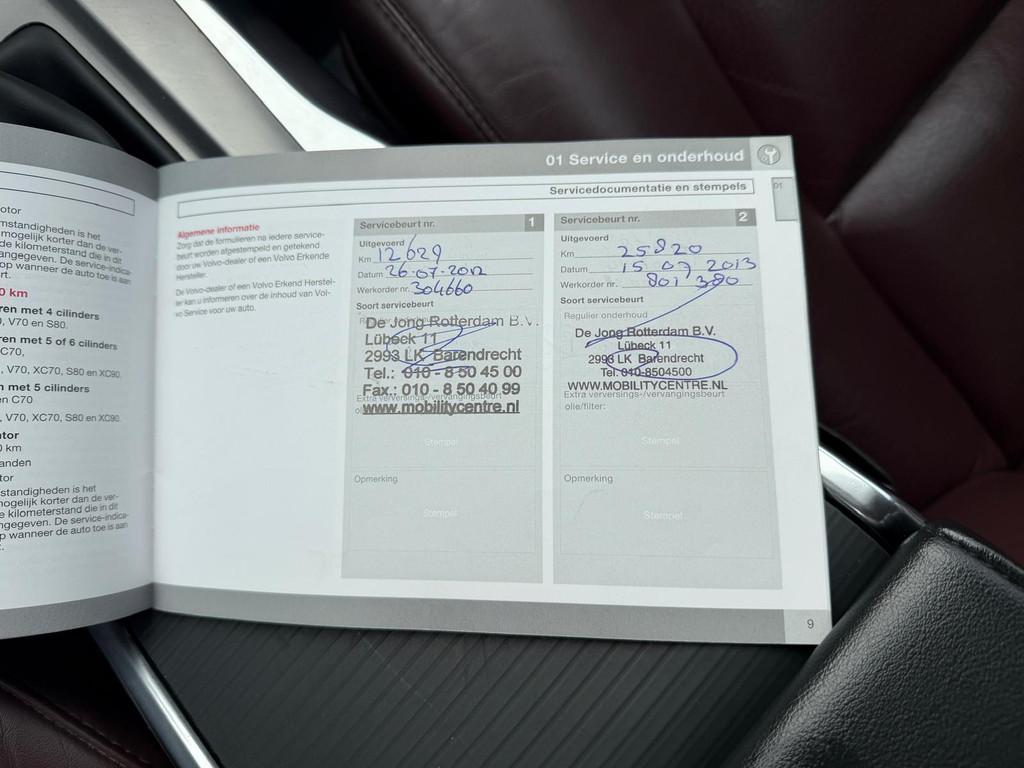 otor
mstandigheden is het
mogelijk korter dan de ver-
de kilometerstand die in dit
angegeven. De service-indica-
op wanneer de auto toe is aan
rt.
0 km
ren met 4 cilinders
, V70 en S80.
ren met 5 of 6 cilinders
C70,
, V70, XC70, S80 en XC90.
n met 5 cilinders
en C70
, V70, XC70, S80 en XC90.
tor
0 km
anden
tor
standigheden is het
mogelijk korter dan de ver-
e kilometerstand die in dit
ngegeven. De service-indica-
p wanneer de auto toe is aan
t.
01 Service en onderhoud
Servicedocumentatie en stempels
01
Algemene informatie
Zorg dat de formulieren na iedere service-
beurt worden afgestempeld en getekend
door uw Volvo-dealer of een Volvo Erkende
Hersteller.
De Volvo-dealer of een Volvo Erkend Herstel-
ler kan u informeren over de inhoud van Vol-
vo Service voor uw auto.
Servicebeurt nr. 1
Uitgevoerd
Km 12629
Datum 26-07-2012
Werkorder nr. 304660
Soort servicebeurt
Regulier onderhoud
De Jong Rotterdam B.V.
Lübeck 11
2993 LK Barendrecht
Tel.: 010 - 8 50 45 00
Fax.: 010 - 8 50 40 99
Extra verversings-/vervangingsbeurt
www.mobilitycentre.nl
Stempel
Opmerking
Stempel
Servicebeurt nr. 2
Uitgevoerd
Km 25820
Datum 15.07.2013
Werkorder nr. 801380
Soort servicebeurt
Regulier onderhoud
De Jong Rotterdam B.V.
Lübeck 11
2993 LK Barendrecht
Tel. 010-8504500
WWW.MOBILITYCENTRE.NL
Extra verversings-/vervangingsbeurt
olie/filter:
Stempel
Opmerking
Stempel
9